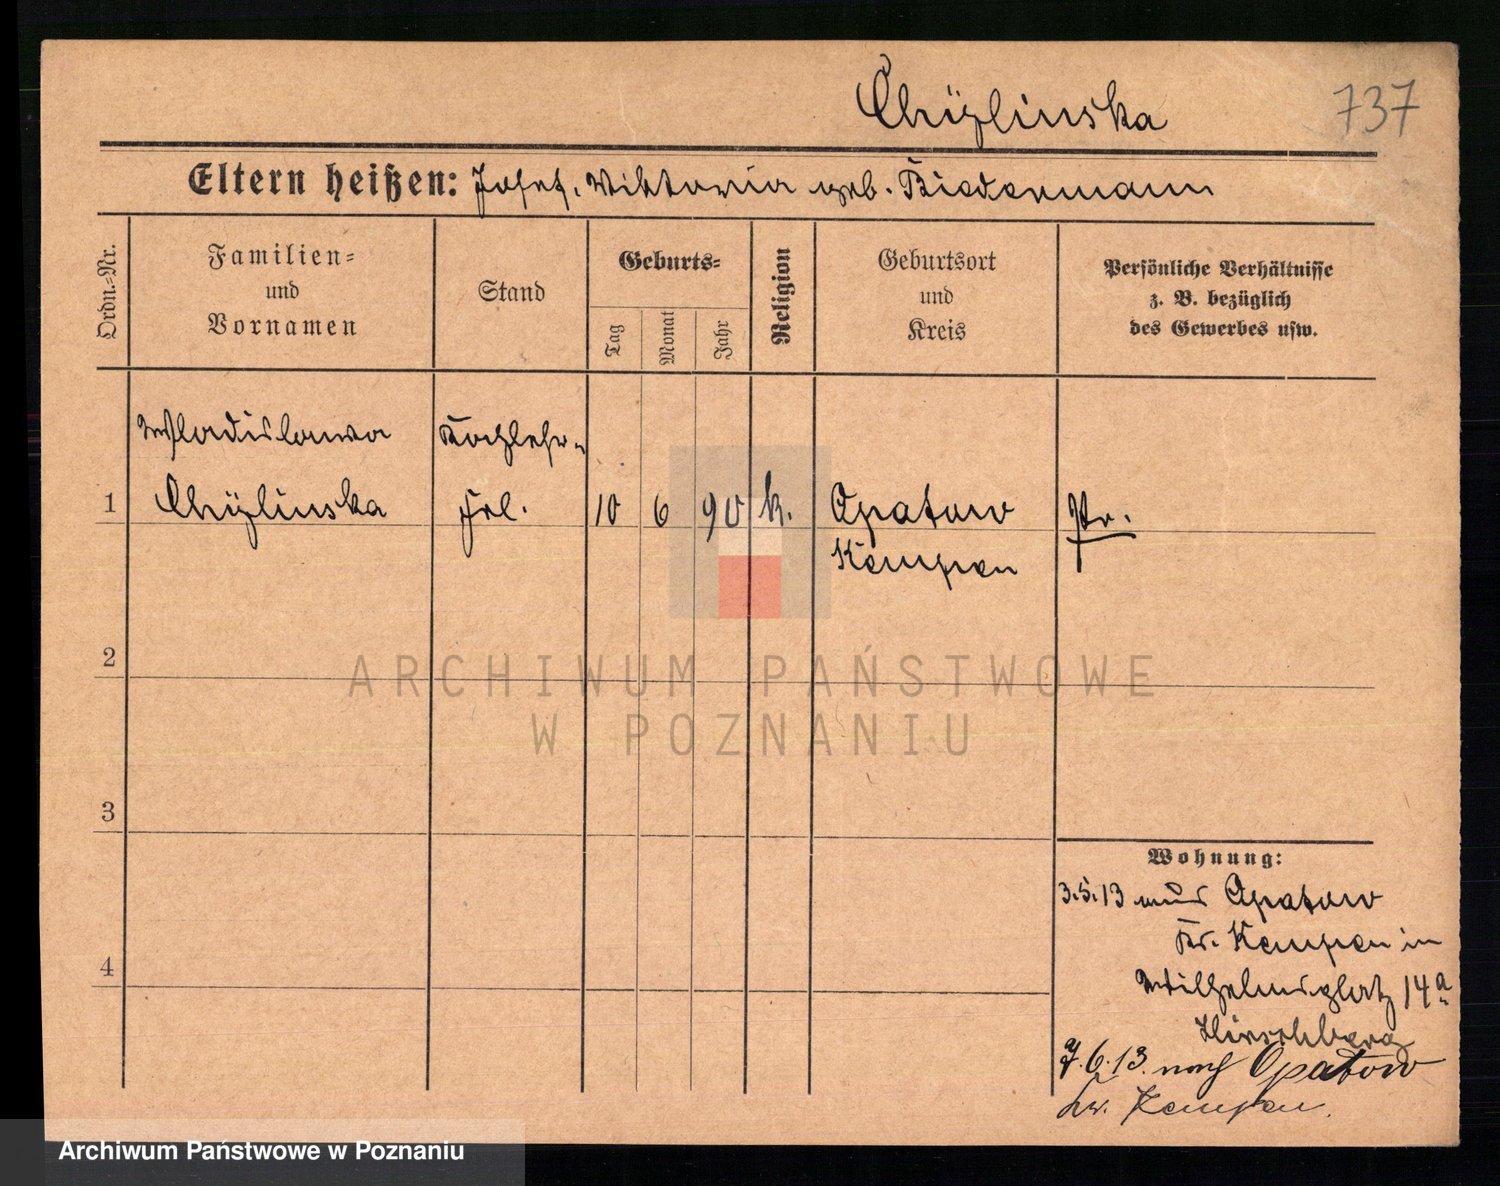 Chÿzlinska 737
Eltern heißen: Josef, Viktoria geb. Biedermann
Ordn.-Nr.
Familien-
und
Vornamen
Stand
Geburts-
Tag
Monat
Jahr
Religion
Geburtsort
und
Kreis
Persönliche Verhältnisse
z. B. bezüglich
des Gewerbes usw.
Wladislawa Kochlehr-
1 Chÿzlinska Frl. 10 6 90 k. Opatow Pr.
Kempen
2
3
4
Wohnung:
3.5.13 aus Opatow
Kr. Kempen in
Wilhelmsplatz 14a
Hirschberg
7.6.13. nach Opatow
Kr. Kempen.
ARCHIWUM PAŃSTWOWE
W POZNANIU
Archiwum Państwowe w Poznaniu